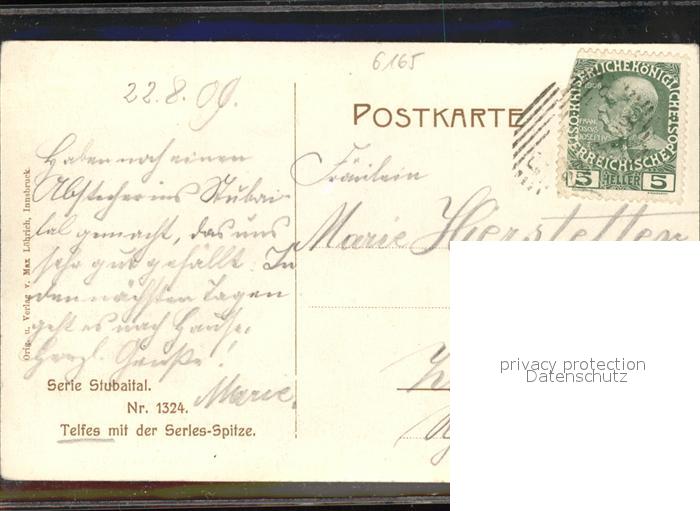 6165
22.8.09.
POSTKARTE
K.K. ÖSTERREICHISCHE POST
1908
FRANCISCUS JOSEPH I
5 HELLER 5
Haben noch einen
Abstecher ins Stubai-
tal gemacht, das uns
sehr gut gefällt. In
den nächsten Tagen
geht es nach Hause.
Herzl. Grüße!
Marie.
Fräulein
Marie Hierstetter
Orig. u. Verlag v. Max Löhrich, Innsbruck.
Serie Stubaital.
Nr. 1324.
Telfes mit der Serles-Spitze.
privacy protection
Datenschutz